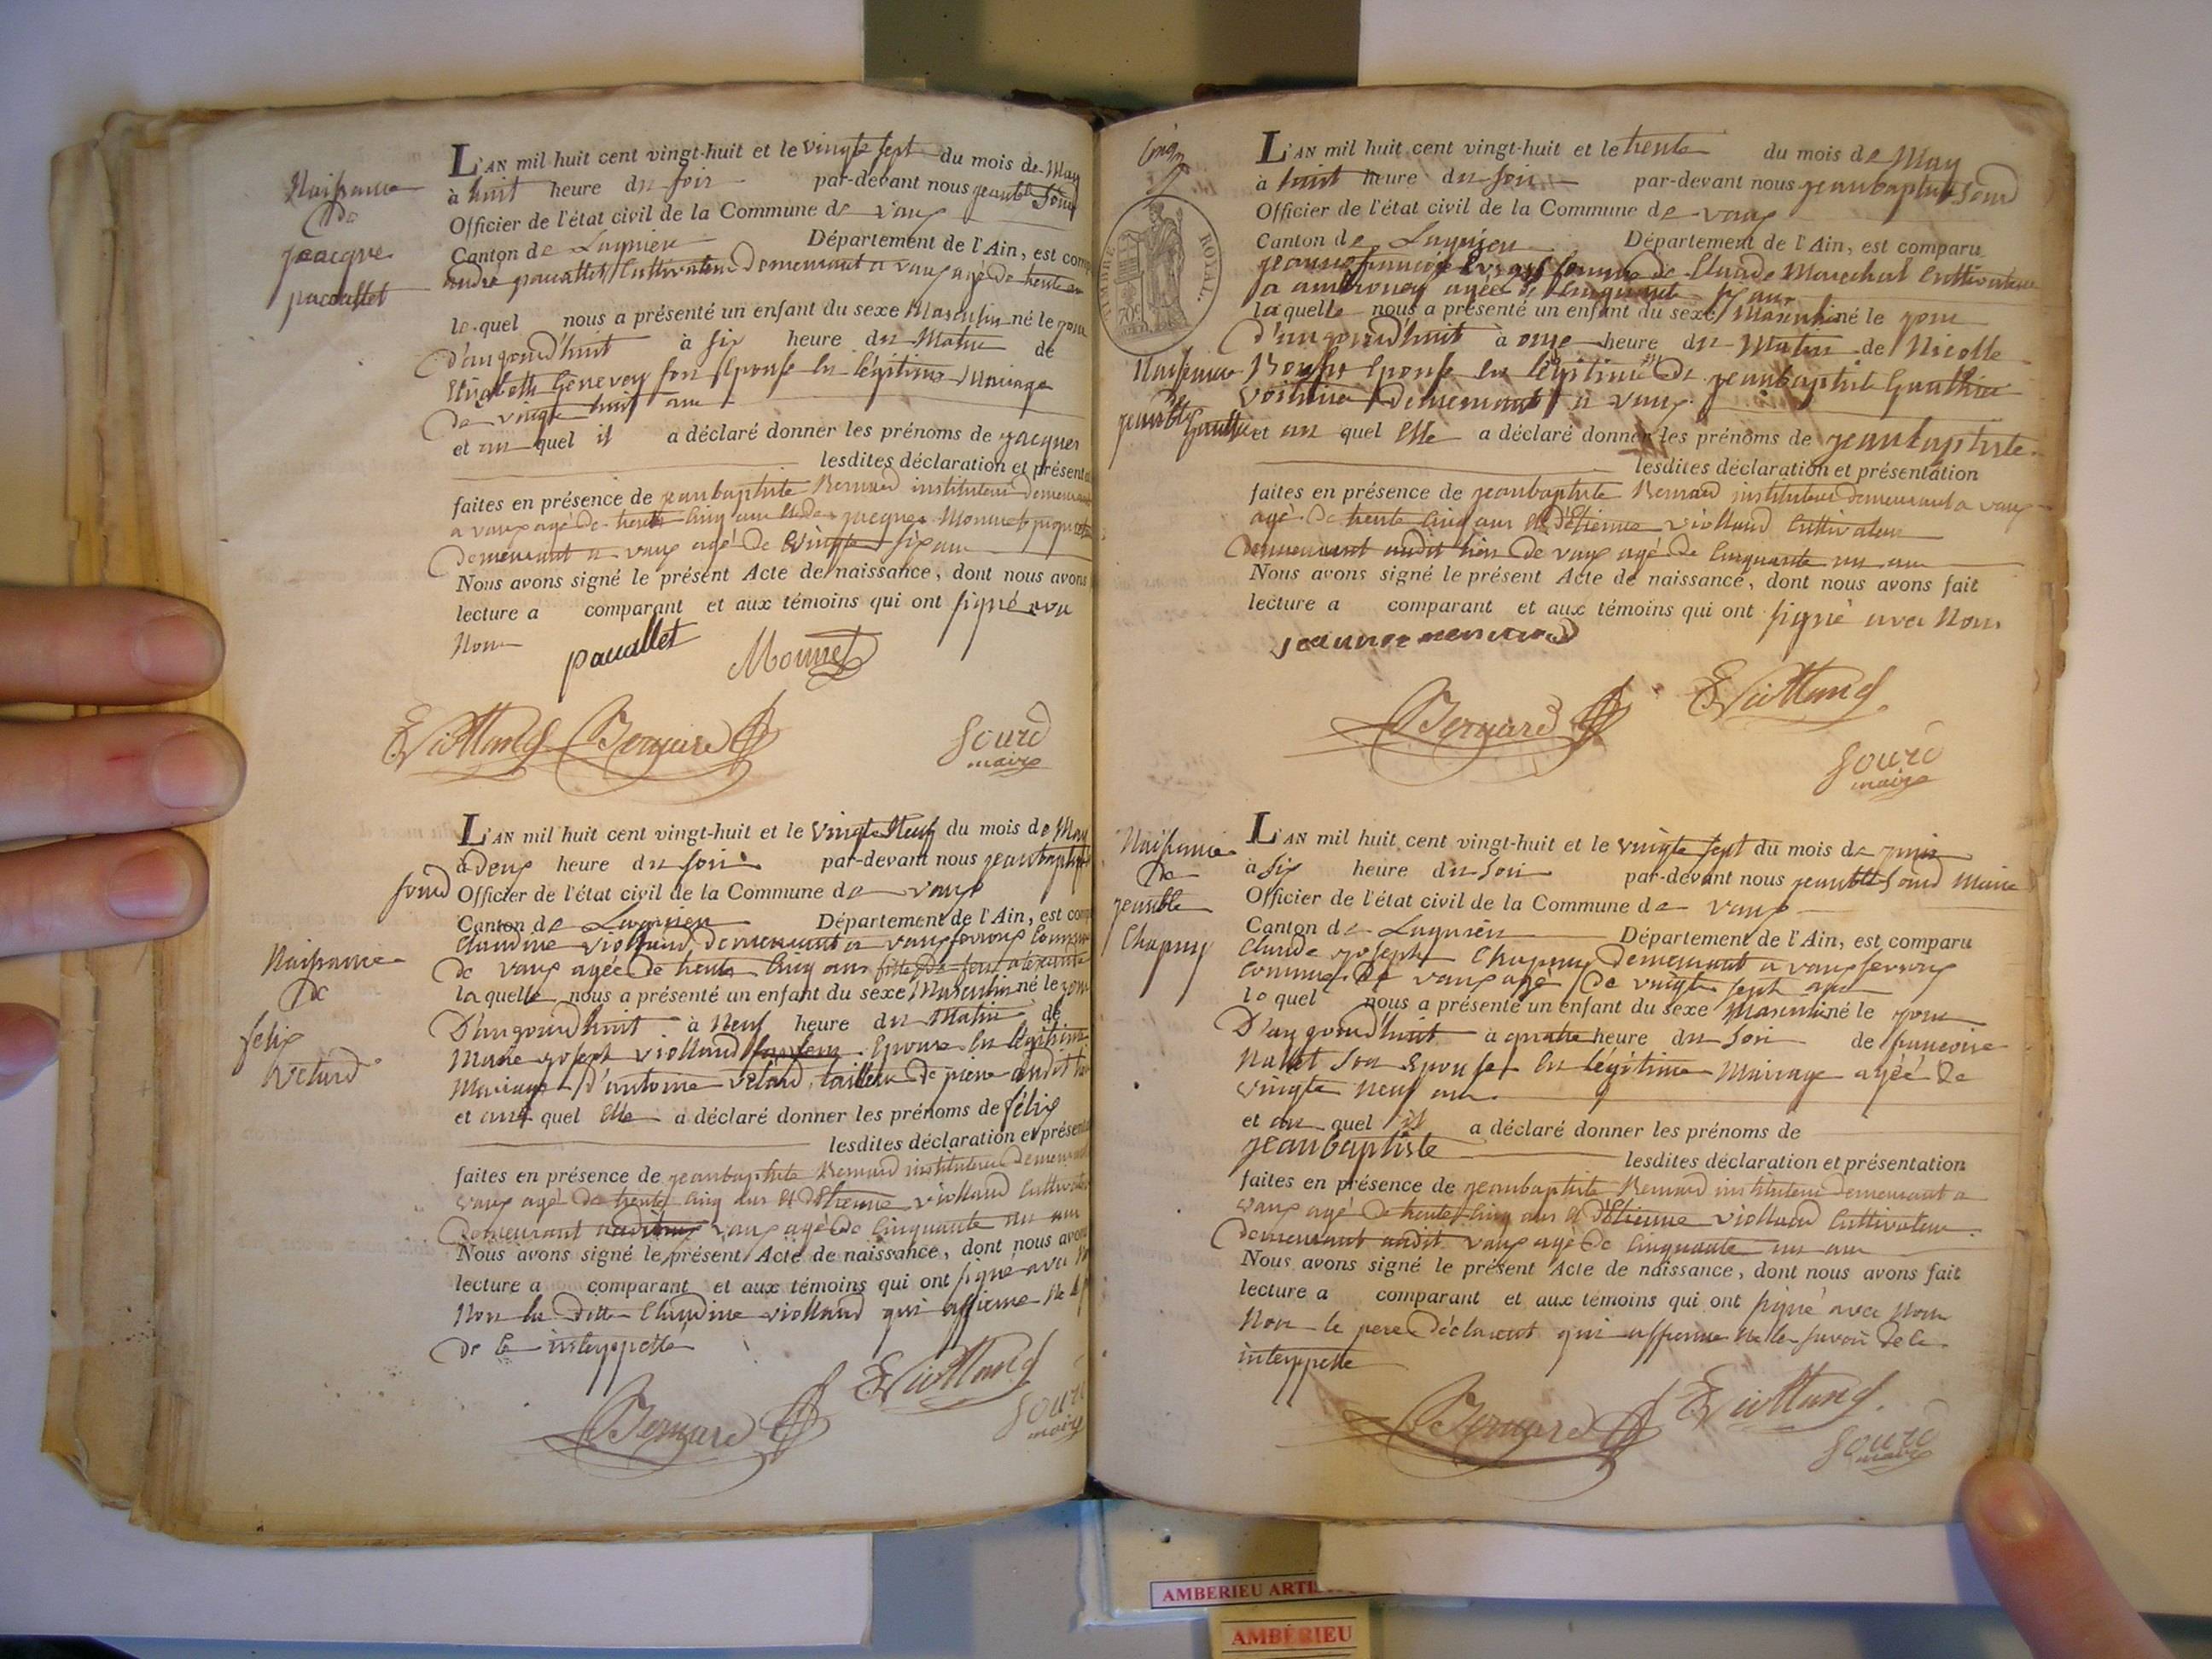 Naissance
de
jeacque
pacallet
L'AN mil huit cent vingt-huit et le vingt sept du mois de May
à huit heure du soir par-devant nous jeanbte Sour
Officier de l'état civil de la Commune de vaux
Canton de Lagnieu Département de l'Ain, est comp
andré pacallet Cultivateur Demeurant a vaux agé de trente
lequel nous a présenté un enfant du sexe Masculin né le jour
d'aujourd'huit à six heure du Matin de
Elizabeth Genevey son Epouse en légitime Mariage
de vingt huit ans
et au quel il a déclaré donner les prénoms de jacques
lesdites déclaration et présenta
faites en présence de jeanbaptiste Bernard instituteur demeurant
a vaux agé de trente cinq ans et de jacques Monnet
demeurant a vaux agé de vingt six ans
Nous avons signé le présent Acte de naissance, dont nous avons
lecture a comparant et aux témoins qui ont signé avec
Nous
pacallet Monnet
EViolland Bernard Sourd
maire
L'AN mil huit cent vingt-huit et le vingt Neuf du mois de May
à deux heure du soir par-devant nous jeanbaptiste
sourd Officier de l'état civil de la Commune de vaux
Canton de Lagnieu Département de l'Ain, est comp
Naissance
de
felix
Vetard
Claudine violland demeurant a vaux fevroux Commune
de vaux agée de trente cinq ans fille de feu
laquelle nous a présenté un enfant du sexe Masculin né le jour
D'aujourd'huit à Neuf heure du Matin de
Marie joseph violland Epouse en légitime
Mariage d'antoine Vetard tailleur de piere audit
et au quel Elle a déclaré donner les prénoms de félix
lesdites déclaration et présenta
faites en présence de jeanbaptiste Bernard instituteur demeurant
vaux agé de trente cinq ans et d'Etienne violland Cultivateur
demeurant vaux agé de Cinquante un ans
Nous avons signé le présent Acte de naissance, dont nous avons
lecture a comparant et aux témoins qui ont signé avec
Non la ditte Claudine violland qui affirme Ne
de ce interppellé
Bernard EViolland Sourd
maire
TIMBRE ROYAL.
L'AN mil huit cent vingt-huit et le trente du mois de May
à huit heure du soir par-devant nous jeanbaptiste Sourd
Officier de l'état civil de la Commune de vaux
Canton de Lagnieu Département de l'Ain, est comparu
jeanne françoise femme de Claude Marechal Cultivateur
a ambronay agée de Cinquante six ans
laquelle nous a présenté un enfant du sexe Masculin né le jour
d'aujourd'huit à onze heure du Matin de Nicolle
Naissance
jeanbte gauthier
Epouse en légitime de jeanbaptiste Gauthier
voiturier demeurant a vaux
et au quel Elle a déclaré donner les prénoms de jeanbaptiste
lesdites déclaration et présentation
faites en présence de jeanbaptiste Bernard instituteur demeurant a vaux
agé de trente cinq ans et d'Etienne violland Cultivateur
demeurant audit lieu de vaux agé de Cinquante un ans
Nous avons signé le présent Acte de naissance, dont nous avons fait
lecture a comparant et aux témoins qui ont signé avec Nous
Bernard EViolland
Sourd
maire
Naissance
de
jeanbte
Chapuy
L'AN mil huit cent vingt-huit et le vingt sept du mois de juin
à six heure du soir par-devant nous jeanbte Sourd Maire
Officier de l'état civil de la Commune de vaux
Canton de Lagnieu Département de l'Ain, est comparu
Claude joseph Chapuy demeurant a vaux fevroux
Commune de vaux agé de vingt sept ans
lequel nous a présenté un enfant du sexe Masculin né le jour
D'aujourd'huit à quatre heure du soir de françoise
Nallet son Epouse en légitime Mairage agéé de
vingt neuf ans
et au quel il a déclaré donner les prénoms de
jeanbaptiste lesdites déclaration et présentation
faites en présence de jeanbaptiste Bernard instituteur demeurant a
vaux agé de trente cinq ans et d'Etienne violland Cultivateur
demeurant audit vaux agé de Cinquante un ans
Nous avons signé le présent Acte de naissance, dont nous avons fait
lecture a comparant et aux témoins qui ont signé avec Nous
Non le pere Déclarant qui affirme Ne le savoir de ce
interppellé
Bernard EViolland
Sourd
maire
AMBERIEU ARTI
AMBÉRIEU